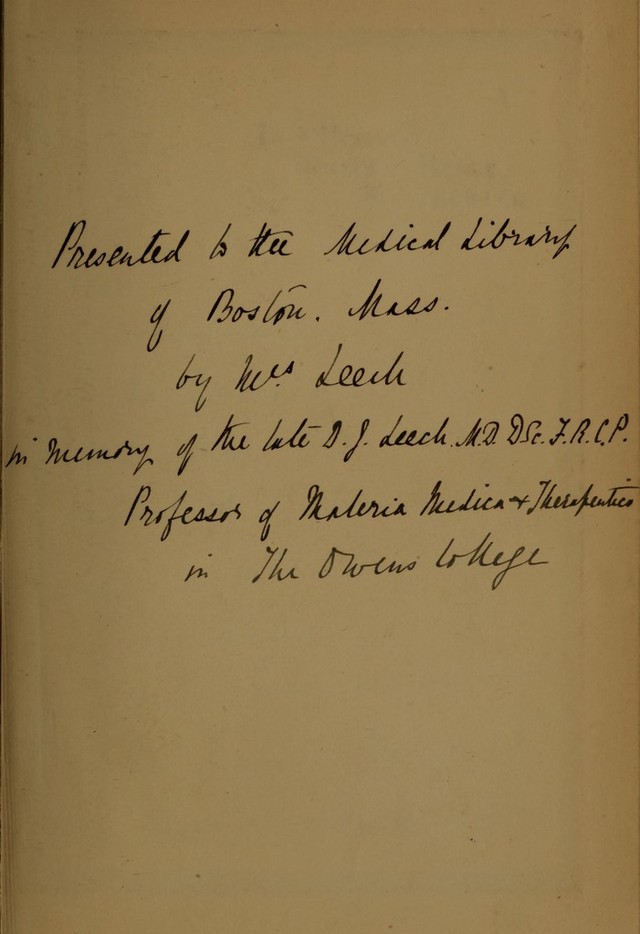 Presented to the Medical Library
of Boston. Mass.
by Mrs Leech
in memory of the late D. J. Leech. M.D. DSc. F.R.C.P.
Professor of Materia Medica & Therapeutics
in The Owens College